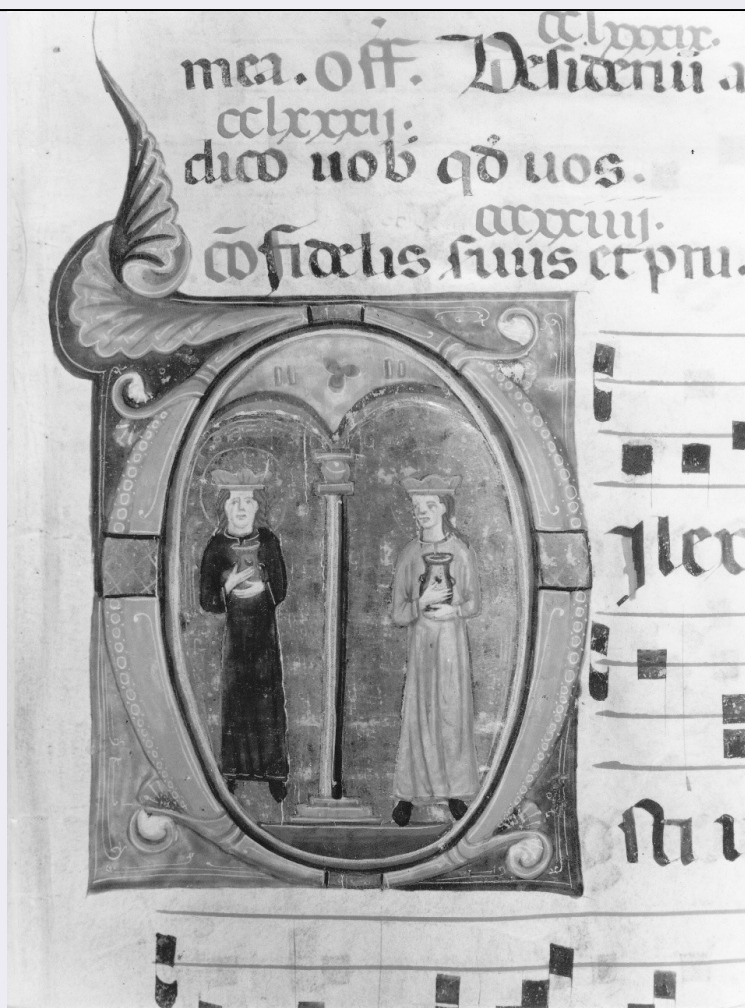 cclxxxix.
mea. Off. Desideriũ a
cclxxxij.
dico uob̄ qđ uos.
ccxxiiij.
cō fidelis suus et pru.